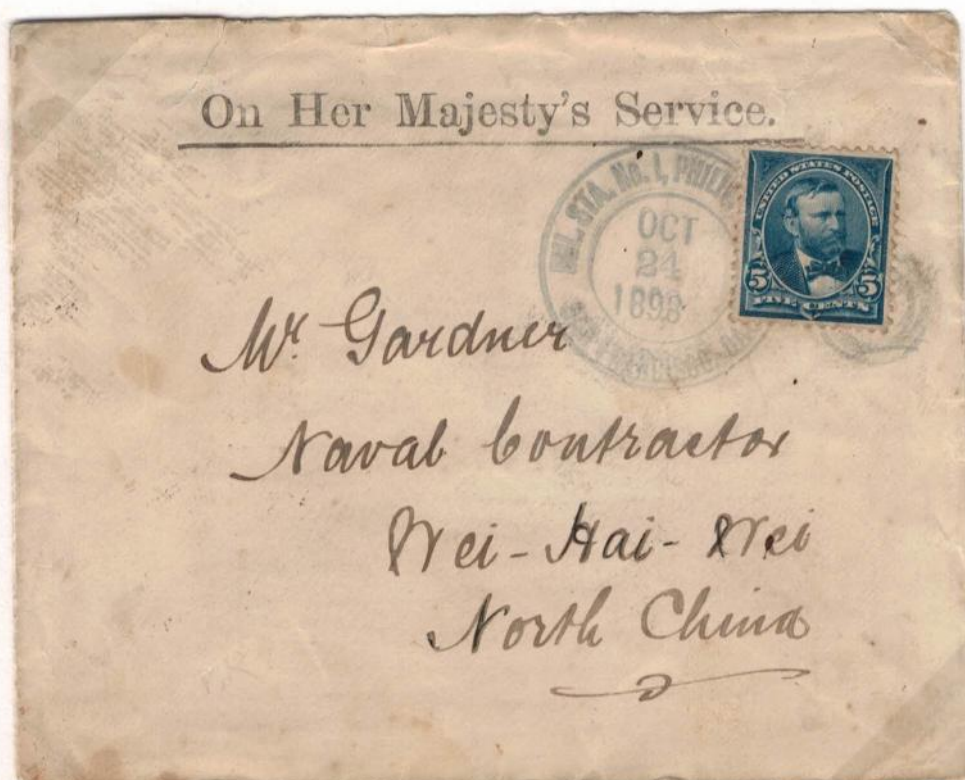 On Her Majesty's Service.
MIL. STA. No. 1, PHILIP
OCT
24
1898
SAN FRANCISCO, CAL
UNITED STATES POSTAGE
5 5
FIVE CENTS
Mr. Gardner
Naval Contractor
Wei-Hai-Wei
North China